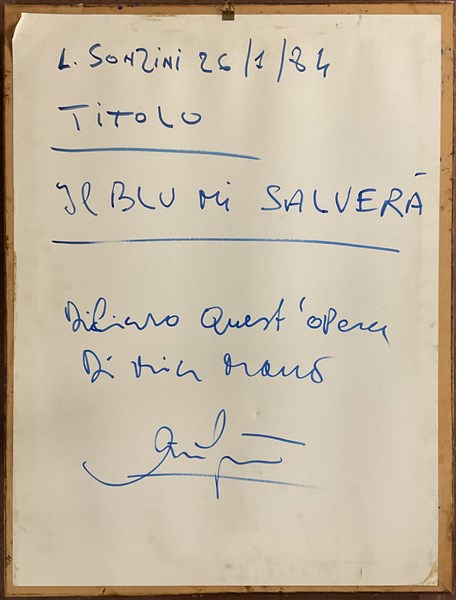 L. SONZINI 26/1/84
TiTOLO
Il BLU Mi SALVERÀ
Dichiaro Quest'opera
Di mia mano